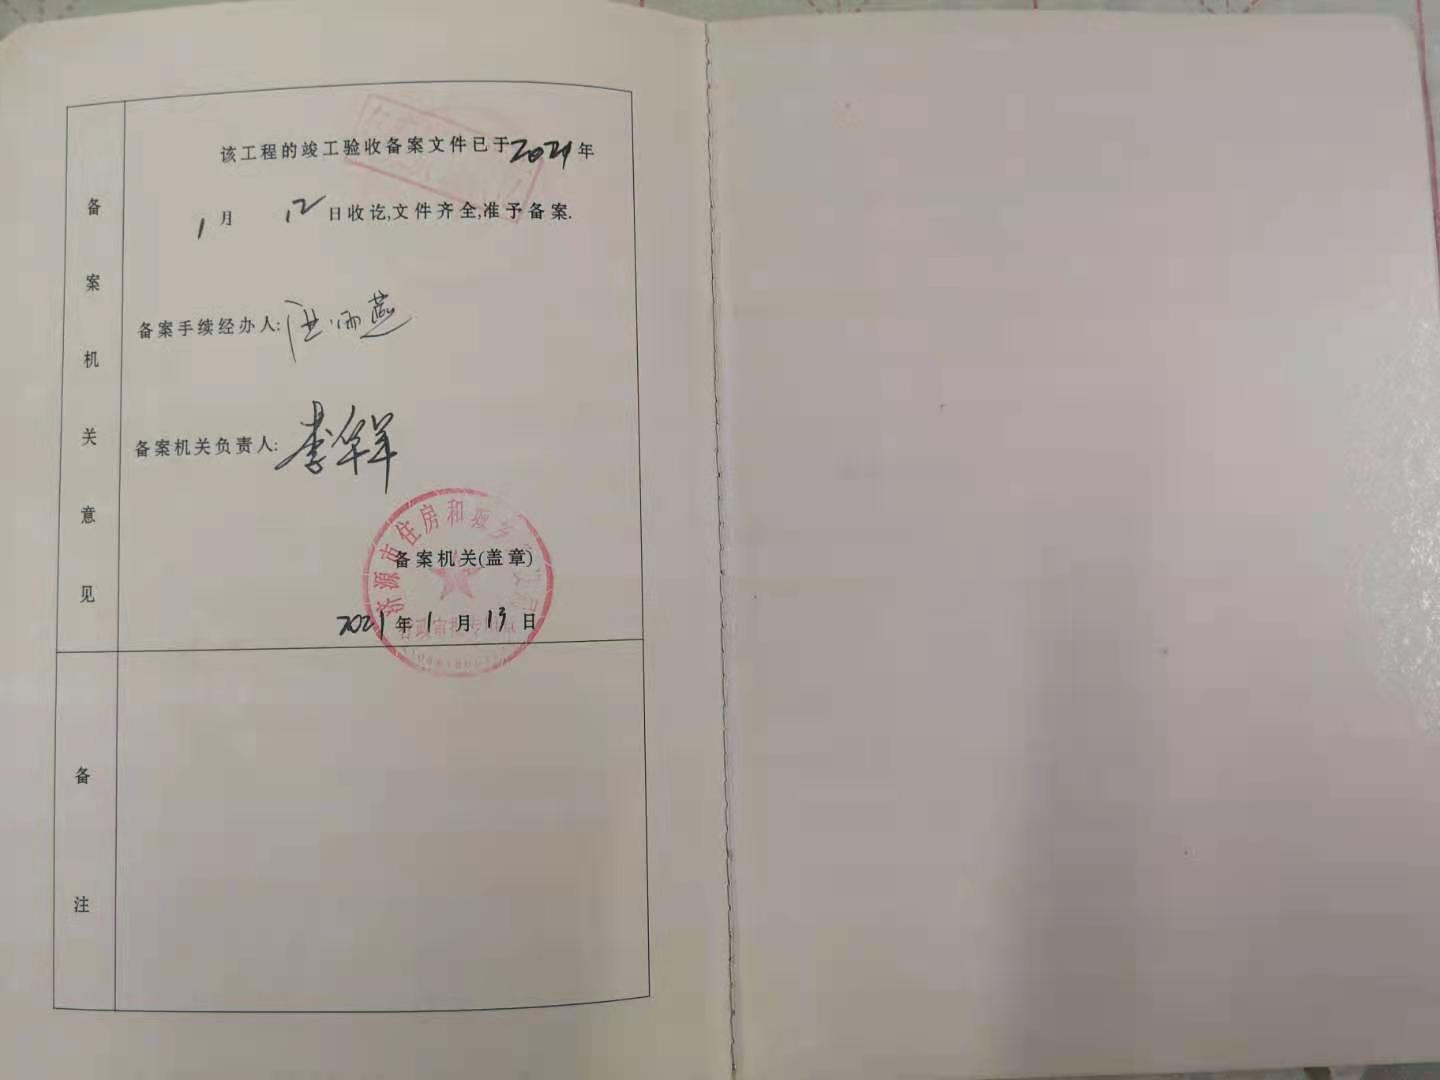 备案机关意见
该工程的竣工验收备案文件已于2021年
1月 12日收讫,文件齐全,准予备案.
备案手续经办人:
备案机关负责人:李华祥
济源市住房和城乡
备案机关(盖章)
2021年1月13日
行政审批专用章
备注